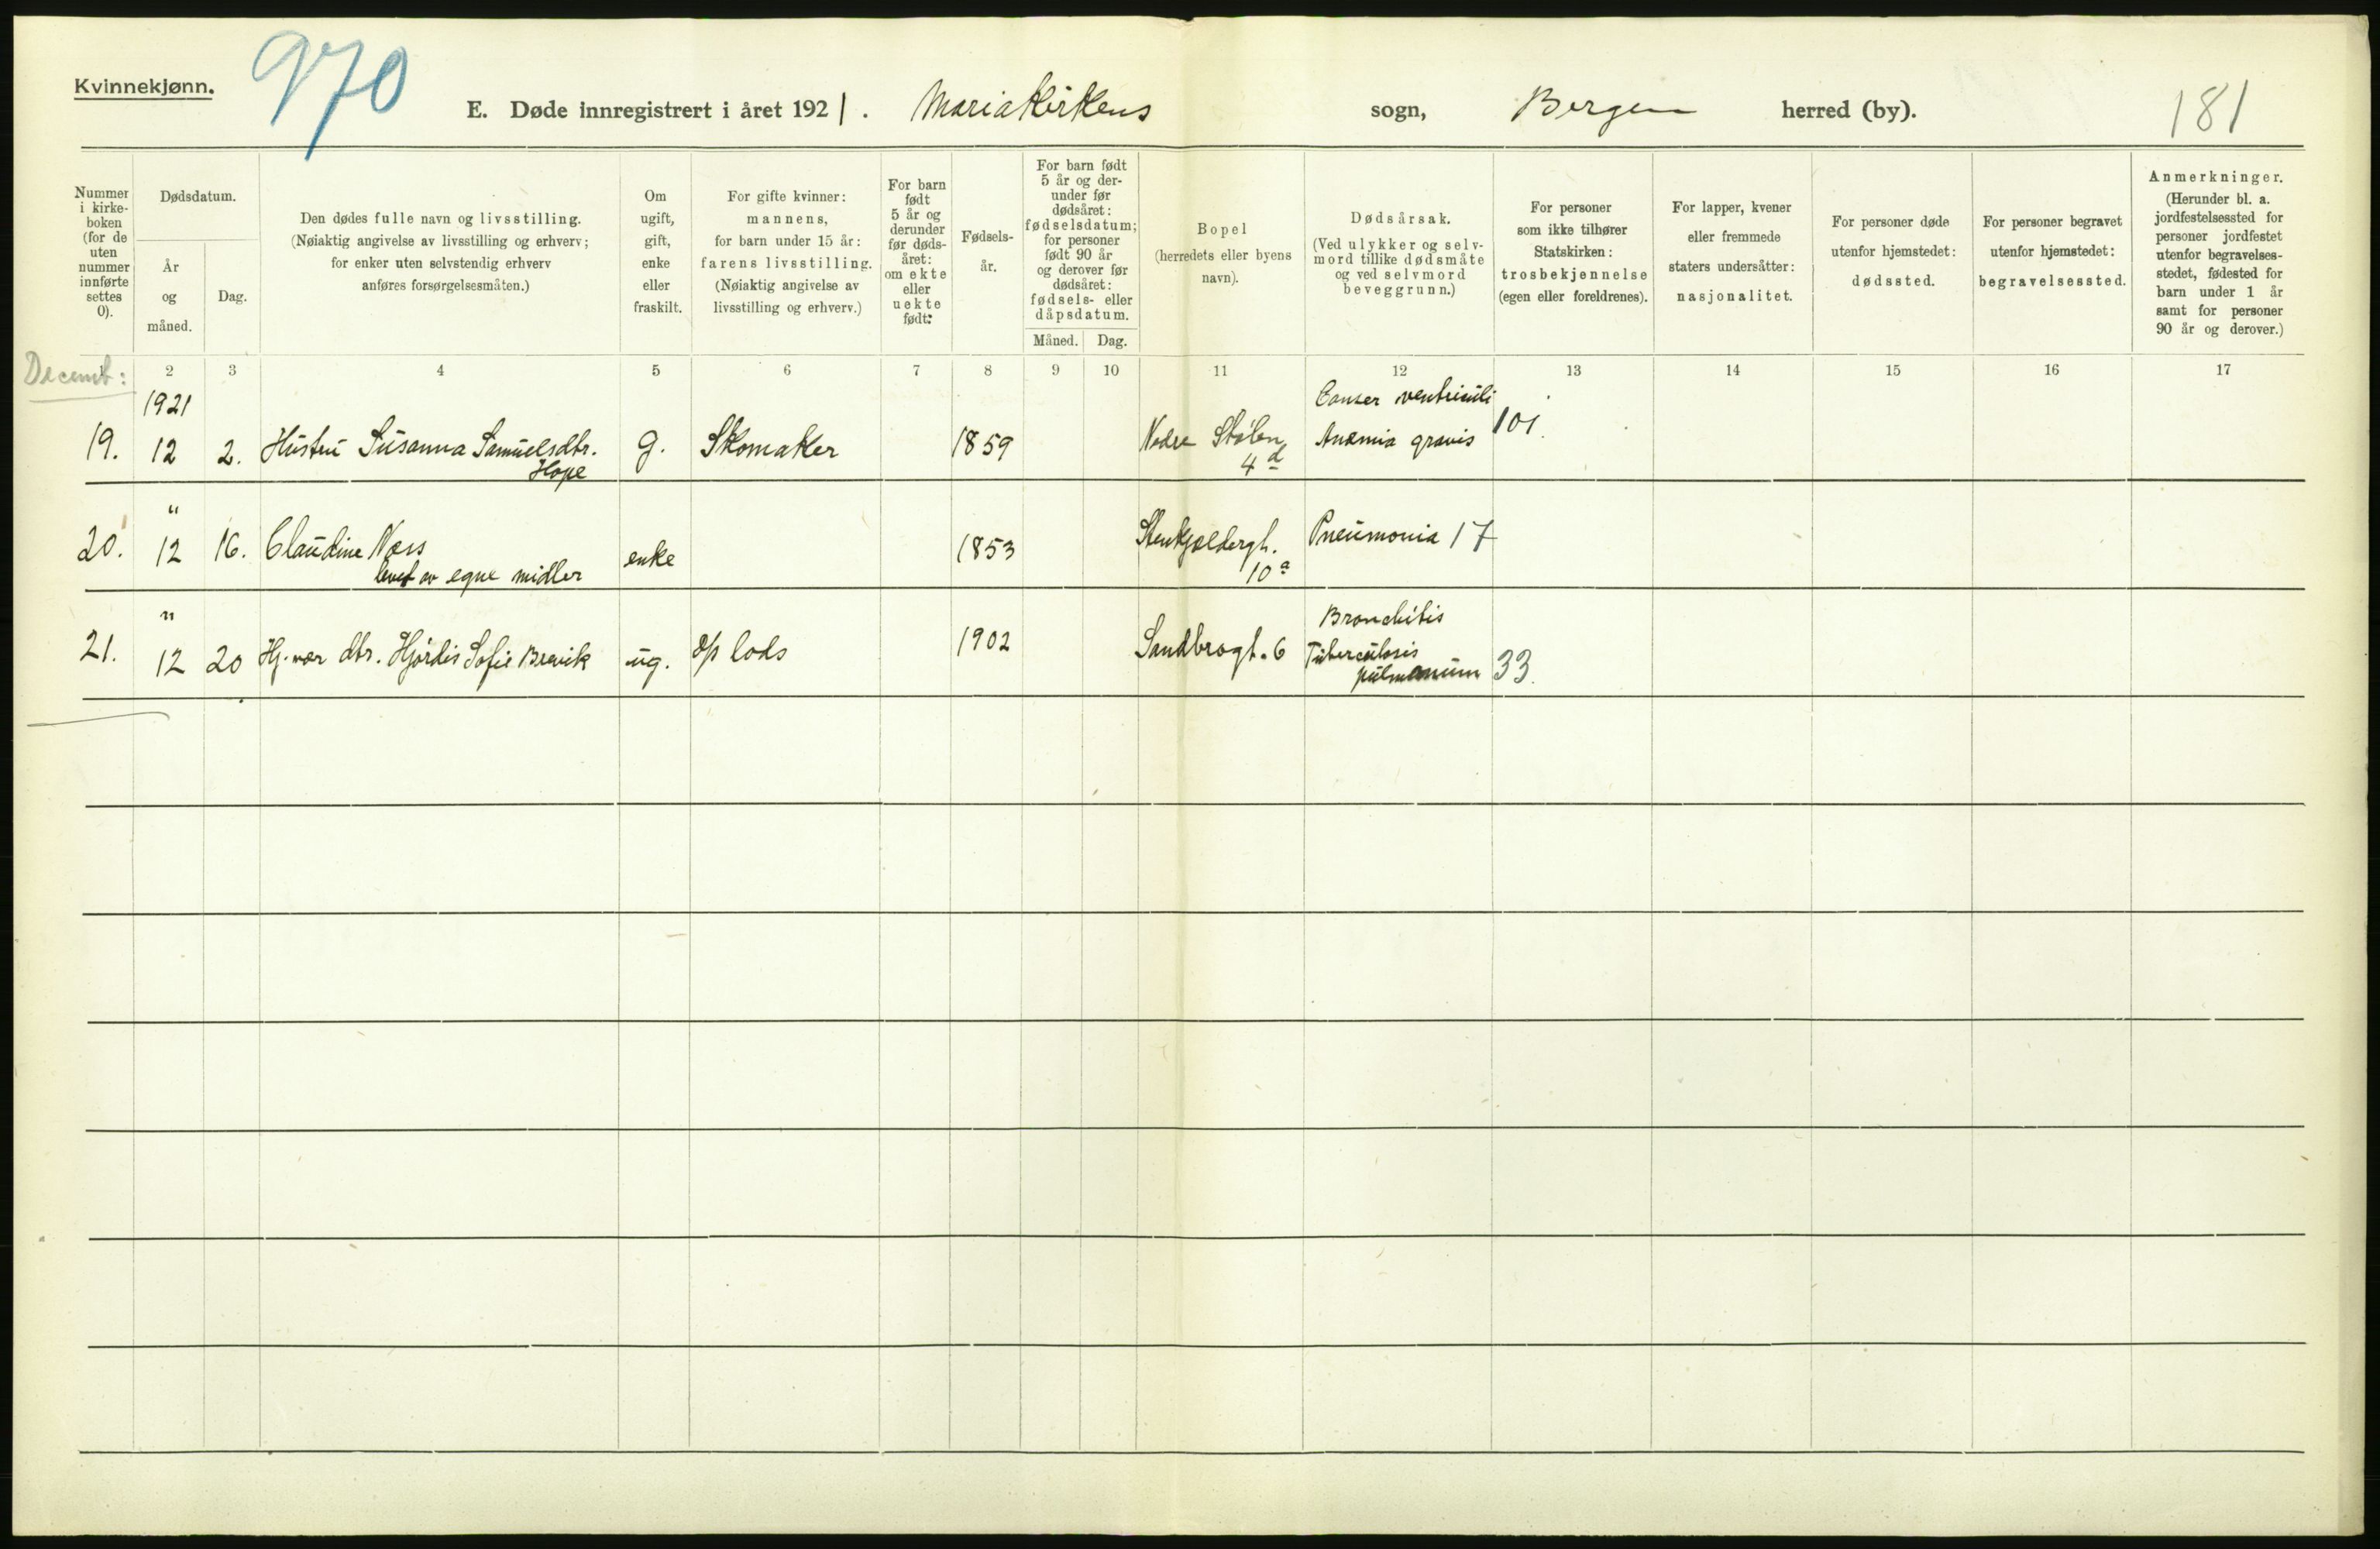 Kvinnekjønn.
970
E. Døde innregistrert i året 1921. Mariakirkens sogn, Bergen herred (by).
181
Nummer i kirke- boken (for de uten nummer innførte settes 0).
Dødsdatum.
År og måned.
Dag.
Den dødes fulle navn og livsstilling.
(Nøiaktig angivelse av livsstilling og erhverv;
for enker uten selvstendig erhverv
anføres forsørgelsesmåten.)
Om ugift, gift, enke eller fraskilt.
For gifte kvinner:
mannens,
for barn under 15 år:
farens livsstilling.
(Nøiaktig angivelse av
livsstilling og erhverv.)
For barn født 5 år og derunder før døds- året: om ekte eller uekte født:
Fødsels- år.
For barn født 5 år og der- under før dødsåret: fødselsdatum; for personer født 90 år og derover før dødsåret: fødsels- eller dåpsdatum.
Måned. Dag.
Bopel
(herredets eller byens
navn).
Dødsårsak.
(Ved ulykker og selv-
mord tillike dødsmåte
og ved selvmord
beveggrunn.)
For personer
som ikke tilhører
Statskirken:
trosbekjennelse
(egen eller foreldrenes).
For lapper, kvener
eller fremmede
staters undersåtter:
nasjonalitet.
For personer døde
utenfor hjemstedet:
dødssted.
For personer begravet
utenfor hjemstedet:
begravelsessted.
Anmerkninger.
(Herunder bl. a.
jordfestelsessted for
personer jordfestet
utenfor begravelses-
stedet, fødested for
barn under 1 år
samt for personer
90 år og derover.)
Decemb:
2 3 4 5 6 7 8 9 10 11 12 13 14 15 16 17
1921 Cancer ventriculi
19. 12 2. Hustru Susanna Samuelsdtr. g. Skomaker 1859 Nedre Stølen Anæmia gravis 101.
Hope 4 d
"
20. 12 16. Claudine Næss enke 1853 Stenkjeldergt. Pneumonia 17
levet av egne midler 10 a
" Bronchitis
21. 12 20 Hj. vær. dtr. Hjørdis Sofie Brevik ug. lods 1902 Sandbrogt. 6 Tuberculosis
pulmonum 33.